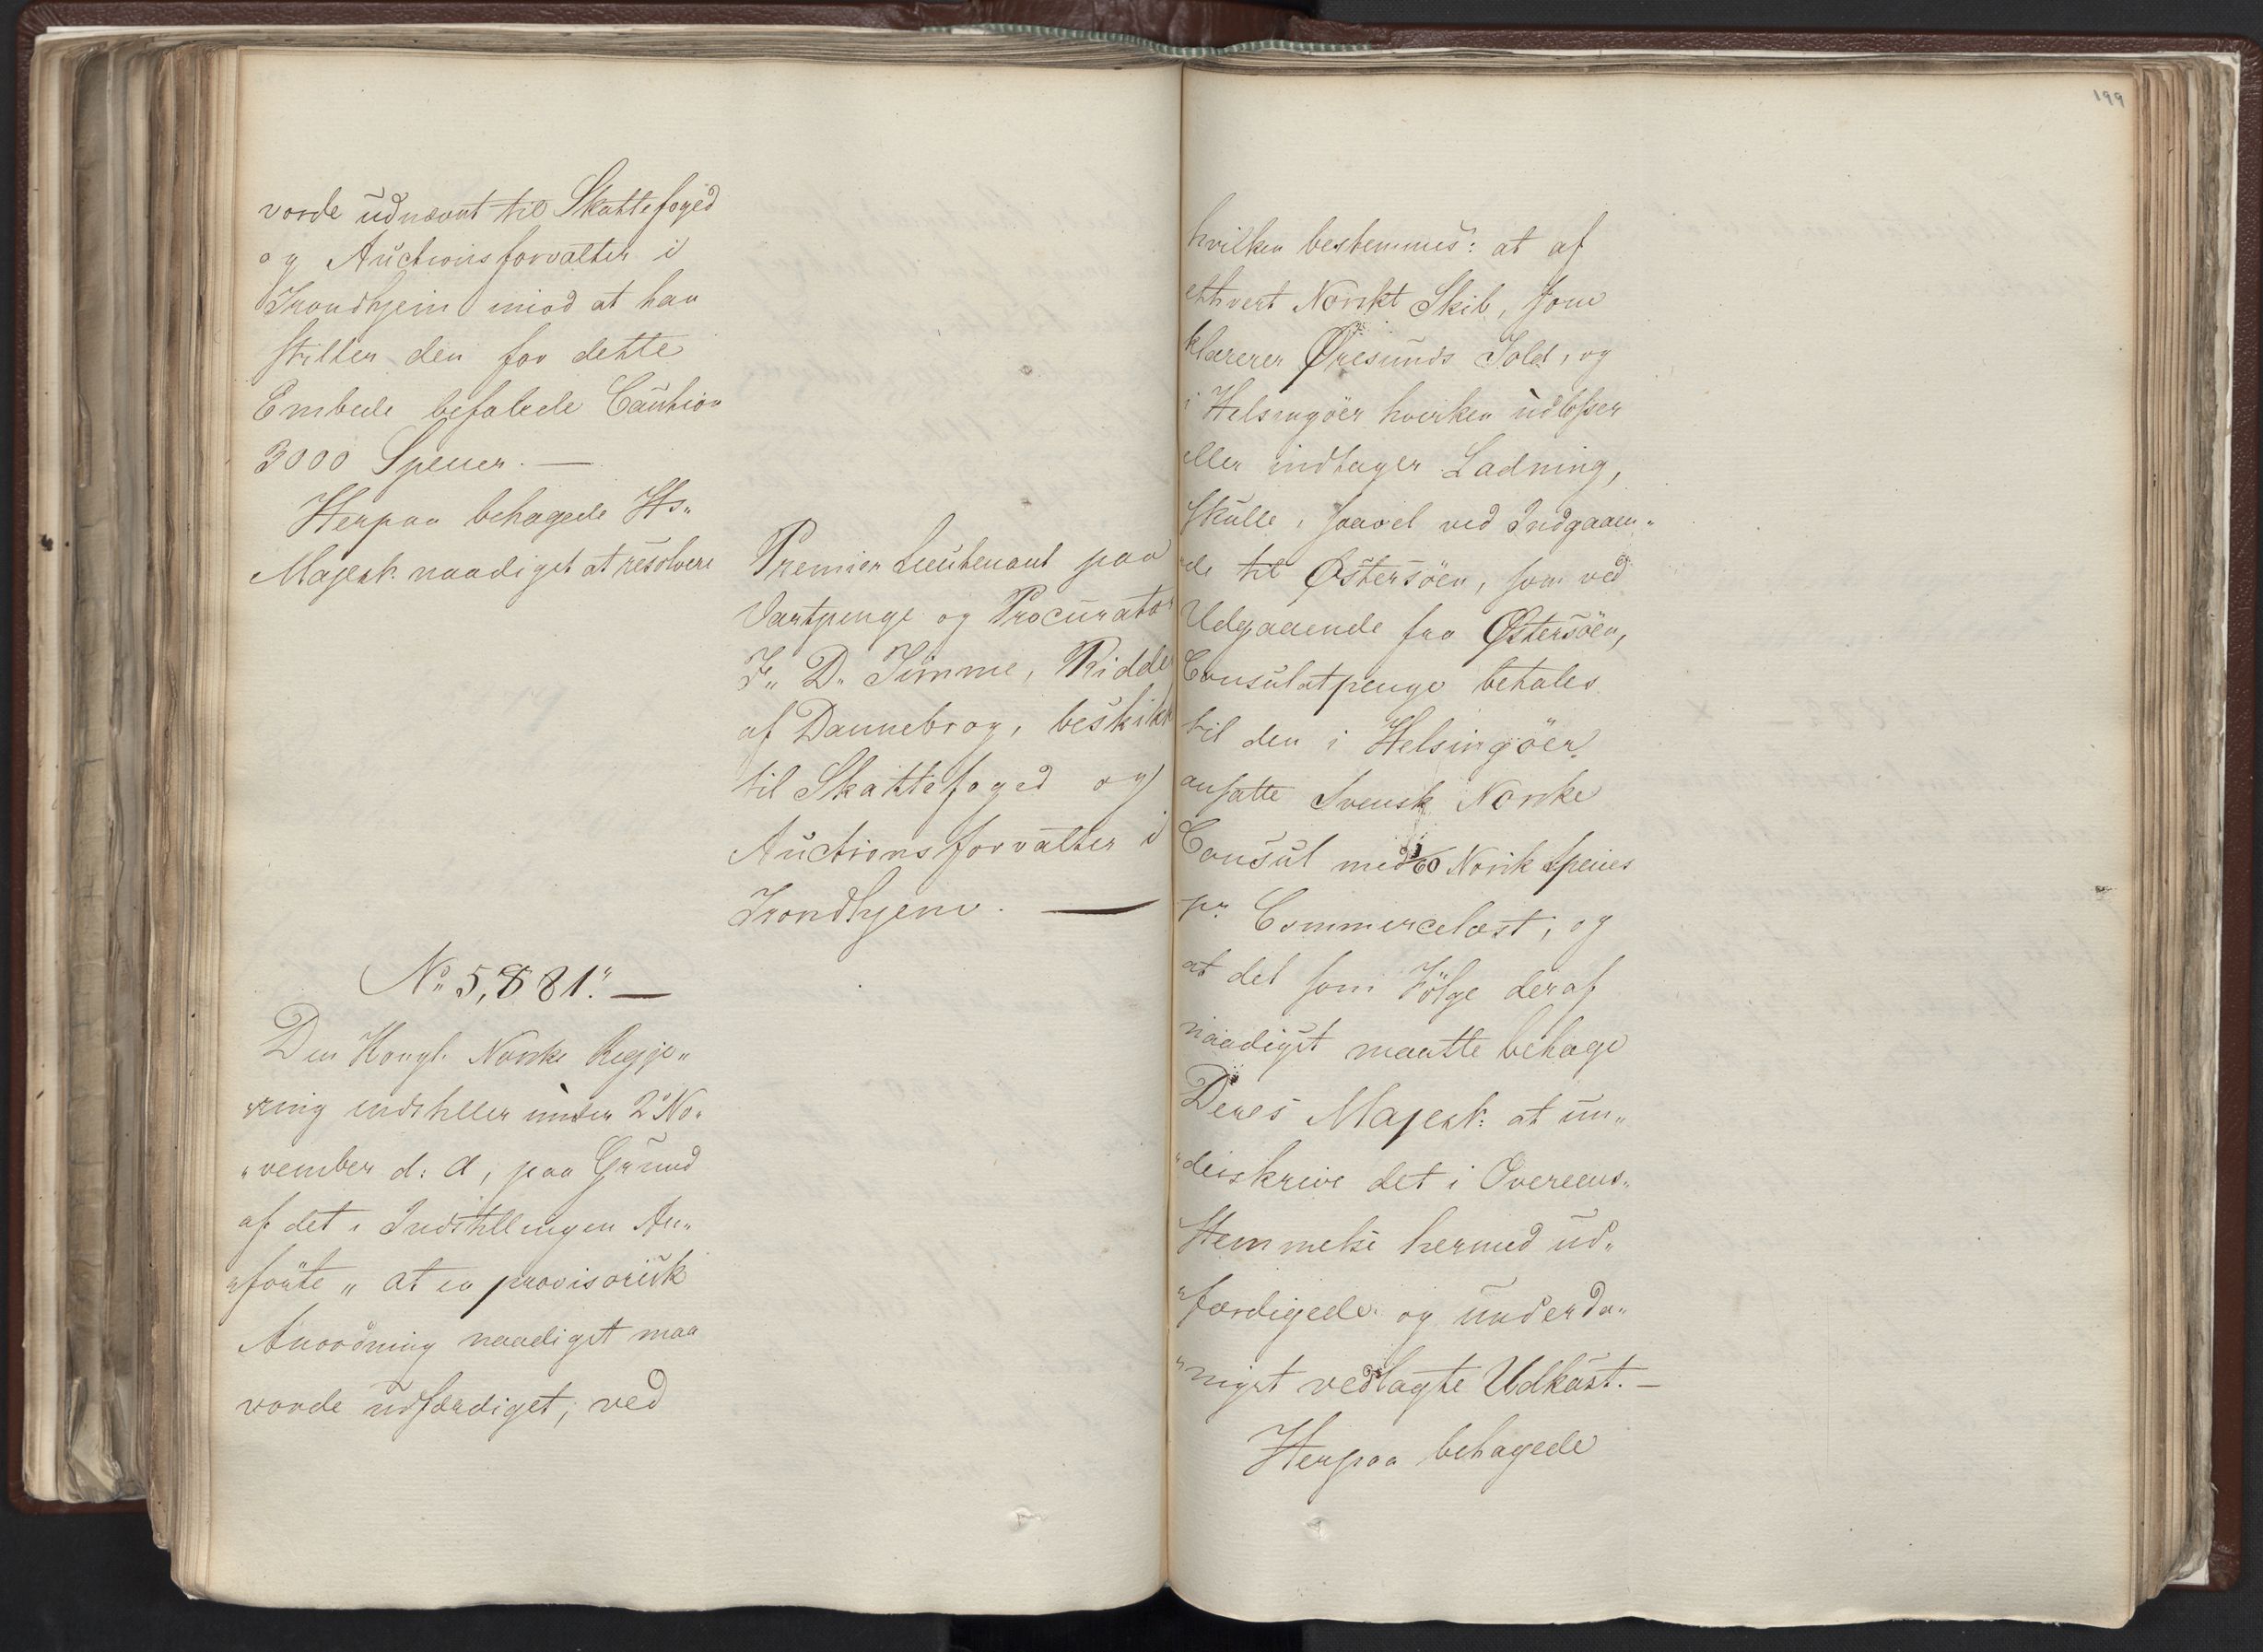 vorde udnævnt til Skattefoged
og Auctionsforvalter i
Trondhjem imod at han
stiller den for dette
Embede befalede Caution
3000 Specier. —
Herpaa behagede Hs„
Majest: naadigst at resolvere
Premier Lieutenant paa
Vartpenge og Procurator
F„ D„ Timme, Ridder
af Dannebrog, beskikk
til Skattefoged og
Auctionsforvalter i
Trondhjem. —
No 5,881." —
Den Kongl. Norske Regje„
„ring indstiller under 2d No„
„vember d: A, paa Grund
af det i Indstillingen An„
„førte „ at en provisorisk
Anordning naadigst maa
vorde udfærdiget, ved
199
hvilken bestemmes: at af
ethvert Norskt Skib, som
klarerer Øresunds Told, og
i Helsingöer hverken udlosser
eller indtager Ladning,
skulle, saavel ved Indgaaen„
„de til Østersöen, som ved
Udgaaende fra Østersöen,
Consulatpenge betales
til den i Helsingöer
ansatte Svensk Norske
Consul med 1/60 Norsk Species
pr Commercelæst, og
at det som Fölge deraf
naadigst maatte behage
Deres Majest: at un„
„derskrive det i Overeens„
stemmelse hermed ud„
„færdigede og underda„
„nigst vedlagte Udkast. —
Herpaa behagede